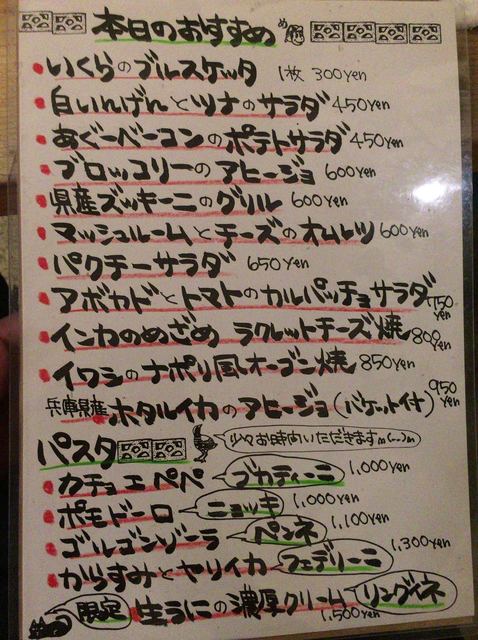 本日のおすすめ め
いくらのブルスケッタ 1枚 300yen
白いんげんとツナのサラダ 450yen
あぐーベーコンのポテトサラダ 450yen
ブロッコリーのアヒージョ 600yen
県産ズッキーニのグリル 600yen
マッシュルームとチーズのオムレツ 600yen
パクチーサラダ 650yen
アボカドとトマトのカルパッチョサラダ 750yen
インカのめざめ ラクレットチーズ焼 800yen
イワシのナポリ風オーブン焼 850yen
兵庫県産ホタルイカのアヒージョ(バケット付) 950yen
パスタ 少々お時間いただきますm(--)m
カチョエペペ ブカティーニ 1,000yen
ポモドーロ ニョッキ 1,000yen
ゴルゴンゾーラ ペンネ 1,100yen
からすみとヤリイカ フェデリーニ 1,300yen
限定 生うにの濃厚クリーム リングイネ 1,500yen